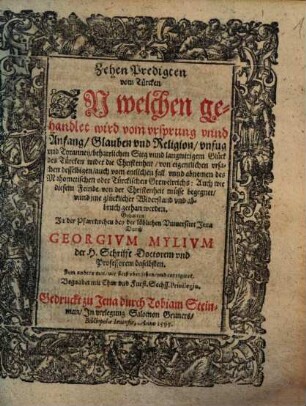 Zehen Predigten
vom Türcken
In welchen ge-
handlet wird vom vrsprung vnnd
Anfang / Glauben vnd Religion / vnfug
vnd Tyranney / beharrlichen Sieg vnnd langwirigem Glück
des Türcken wider die Christenheit / von eigentlichen vrsa-
chen desselbigen / auch vom entlichen fall vnnd abnemen des
Mahometischen oder Türckischen Grewelreichs: Auch wie
diesem Feinde von der Christenheit müsse begegnet /
vnnd jme glücklicher Widerstand vnd ab-
bruch gethan werden.
Gehalten
In der Pfarrkirchen bey der löblichen Vniuersitet Jena
Durch
GEORGIVM MYLIVM
der H. Schrifft Doctorem vnd
Professorn daselbsten.
Zum andern mal mit fleis vbersehen vnd corrigiret.
Begnadet mit Chur vnd Fürst. Sächs. Priuilegien.
Gedruckt zu Jena durch Tobiam Stein-
man / In verlegung Salomon Gruners /